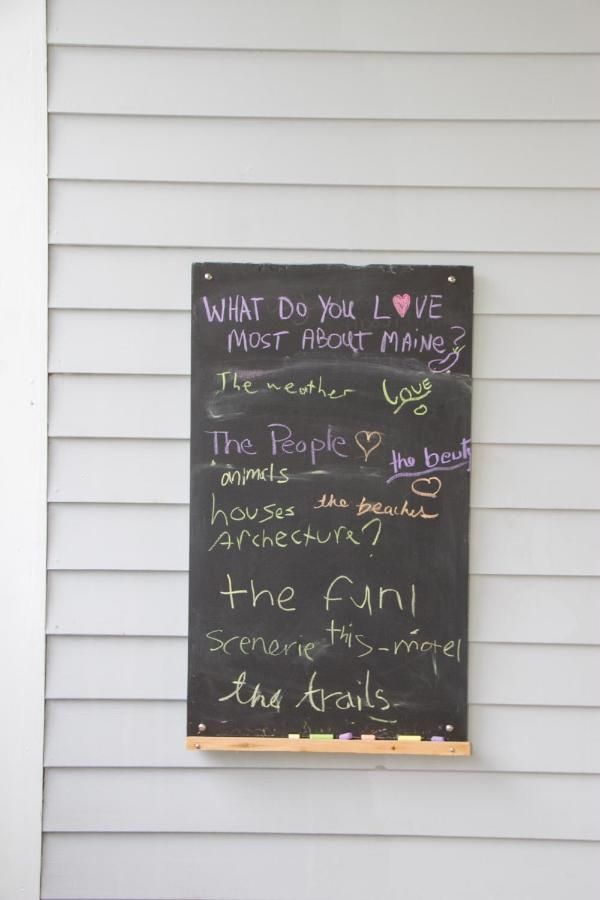 WHAT DO YOU LOVE
MOST ABOUT MAINE?
The weather LOVE
The People
the beuty
animals
houses the beaches
Archecture?
the fun!
Scenerie this-motel
the trails